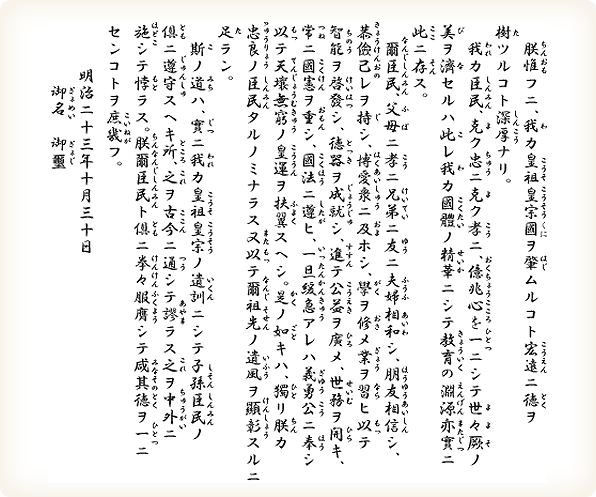 朕惟フニ、我カ皇祖皇宗國ヲ肇ムルコト宏遠ニ徳ヲ
樹ツルコト深厚ナリ。
我カ臣民、克ク忠ニ克ク孝ニ、億兆心を一ニシテ世々厥ノ
美ヲ濟セルハ此レ我カ國體ノ精華ニシテ教育の淵源亦實ニ
此ニ存ス。
爾臣民、父母ニ孝ニ兄弟ニ友ニ夫婦相和シ、朋友相信シ、
恭儉己レヲ持シ、博愛衆ニ及ホシ、學ヲ修メ業ヲ習ヒ以テ
智能ヲ啓發シ、徳器ヲ成就シ、進テ公益ヲ廣メ、世務ヲ開キ、
常ニ國憲ヲ重シ、國法ニ遵ヒ、一旦緩急アレハ義勇公ニ奉シ
以テ天壤無窮ノ皇運ヲ扶翼スヘシ。是ノ如キハ、獨リ朕カ
忠良ノ臣民タルノミナラス又以テ爾祖先ノ遺風ヲ顯彰スルニ
足ラン。
斯ノ道ハ、實ニ我カ皇祖皇宗ノ遺訓ニシテ子孫臣民ノ
倶ニ遵守スヘキ所、之ヲ古今ニ通シテ謬ラス之ヲ中外ニ
施シテ悖ラス。朕爾臣民ト倶ニ拳々服膺シテ咸其徳ヲ一ニ
センコトヲ庶幾フ。
明治二十三年十月三十日
御名　御璽